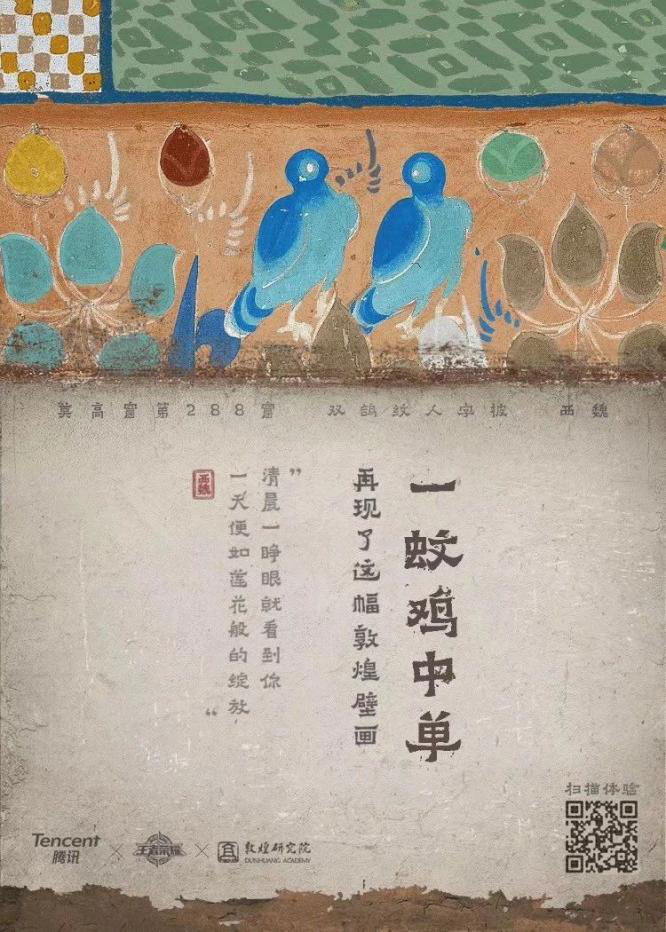 莫高窟第288窟 双鸽纹人字披 西魏
一蚊鸡中单
再现了这幅敦煌壁画
”清晨一睁眼就看到你
一天便如莲花般的绽放“
西魏
扫描体验
Tencent
腾讯
王者荣耀
敦煌研究院
DUNHUANG ACADEMY